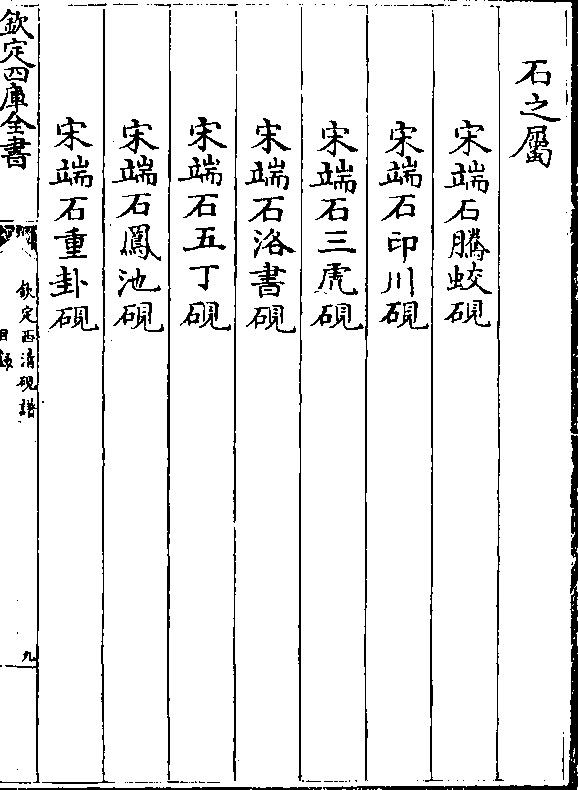 石之屬
宋端石騰蛟硯
宋端石印川硯
宋端石三虎硯
宋端石洛書硯
宋端石五丁硯
宋端石鳳池硯
宋端石重卦硯
欽定四庫全書
欽定西清硯譜
目錄
九